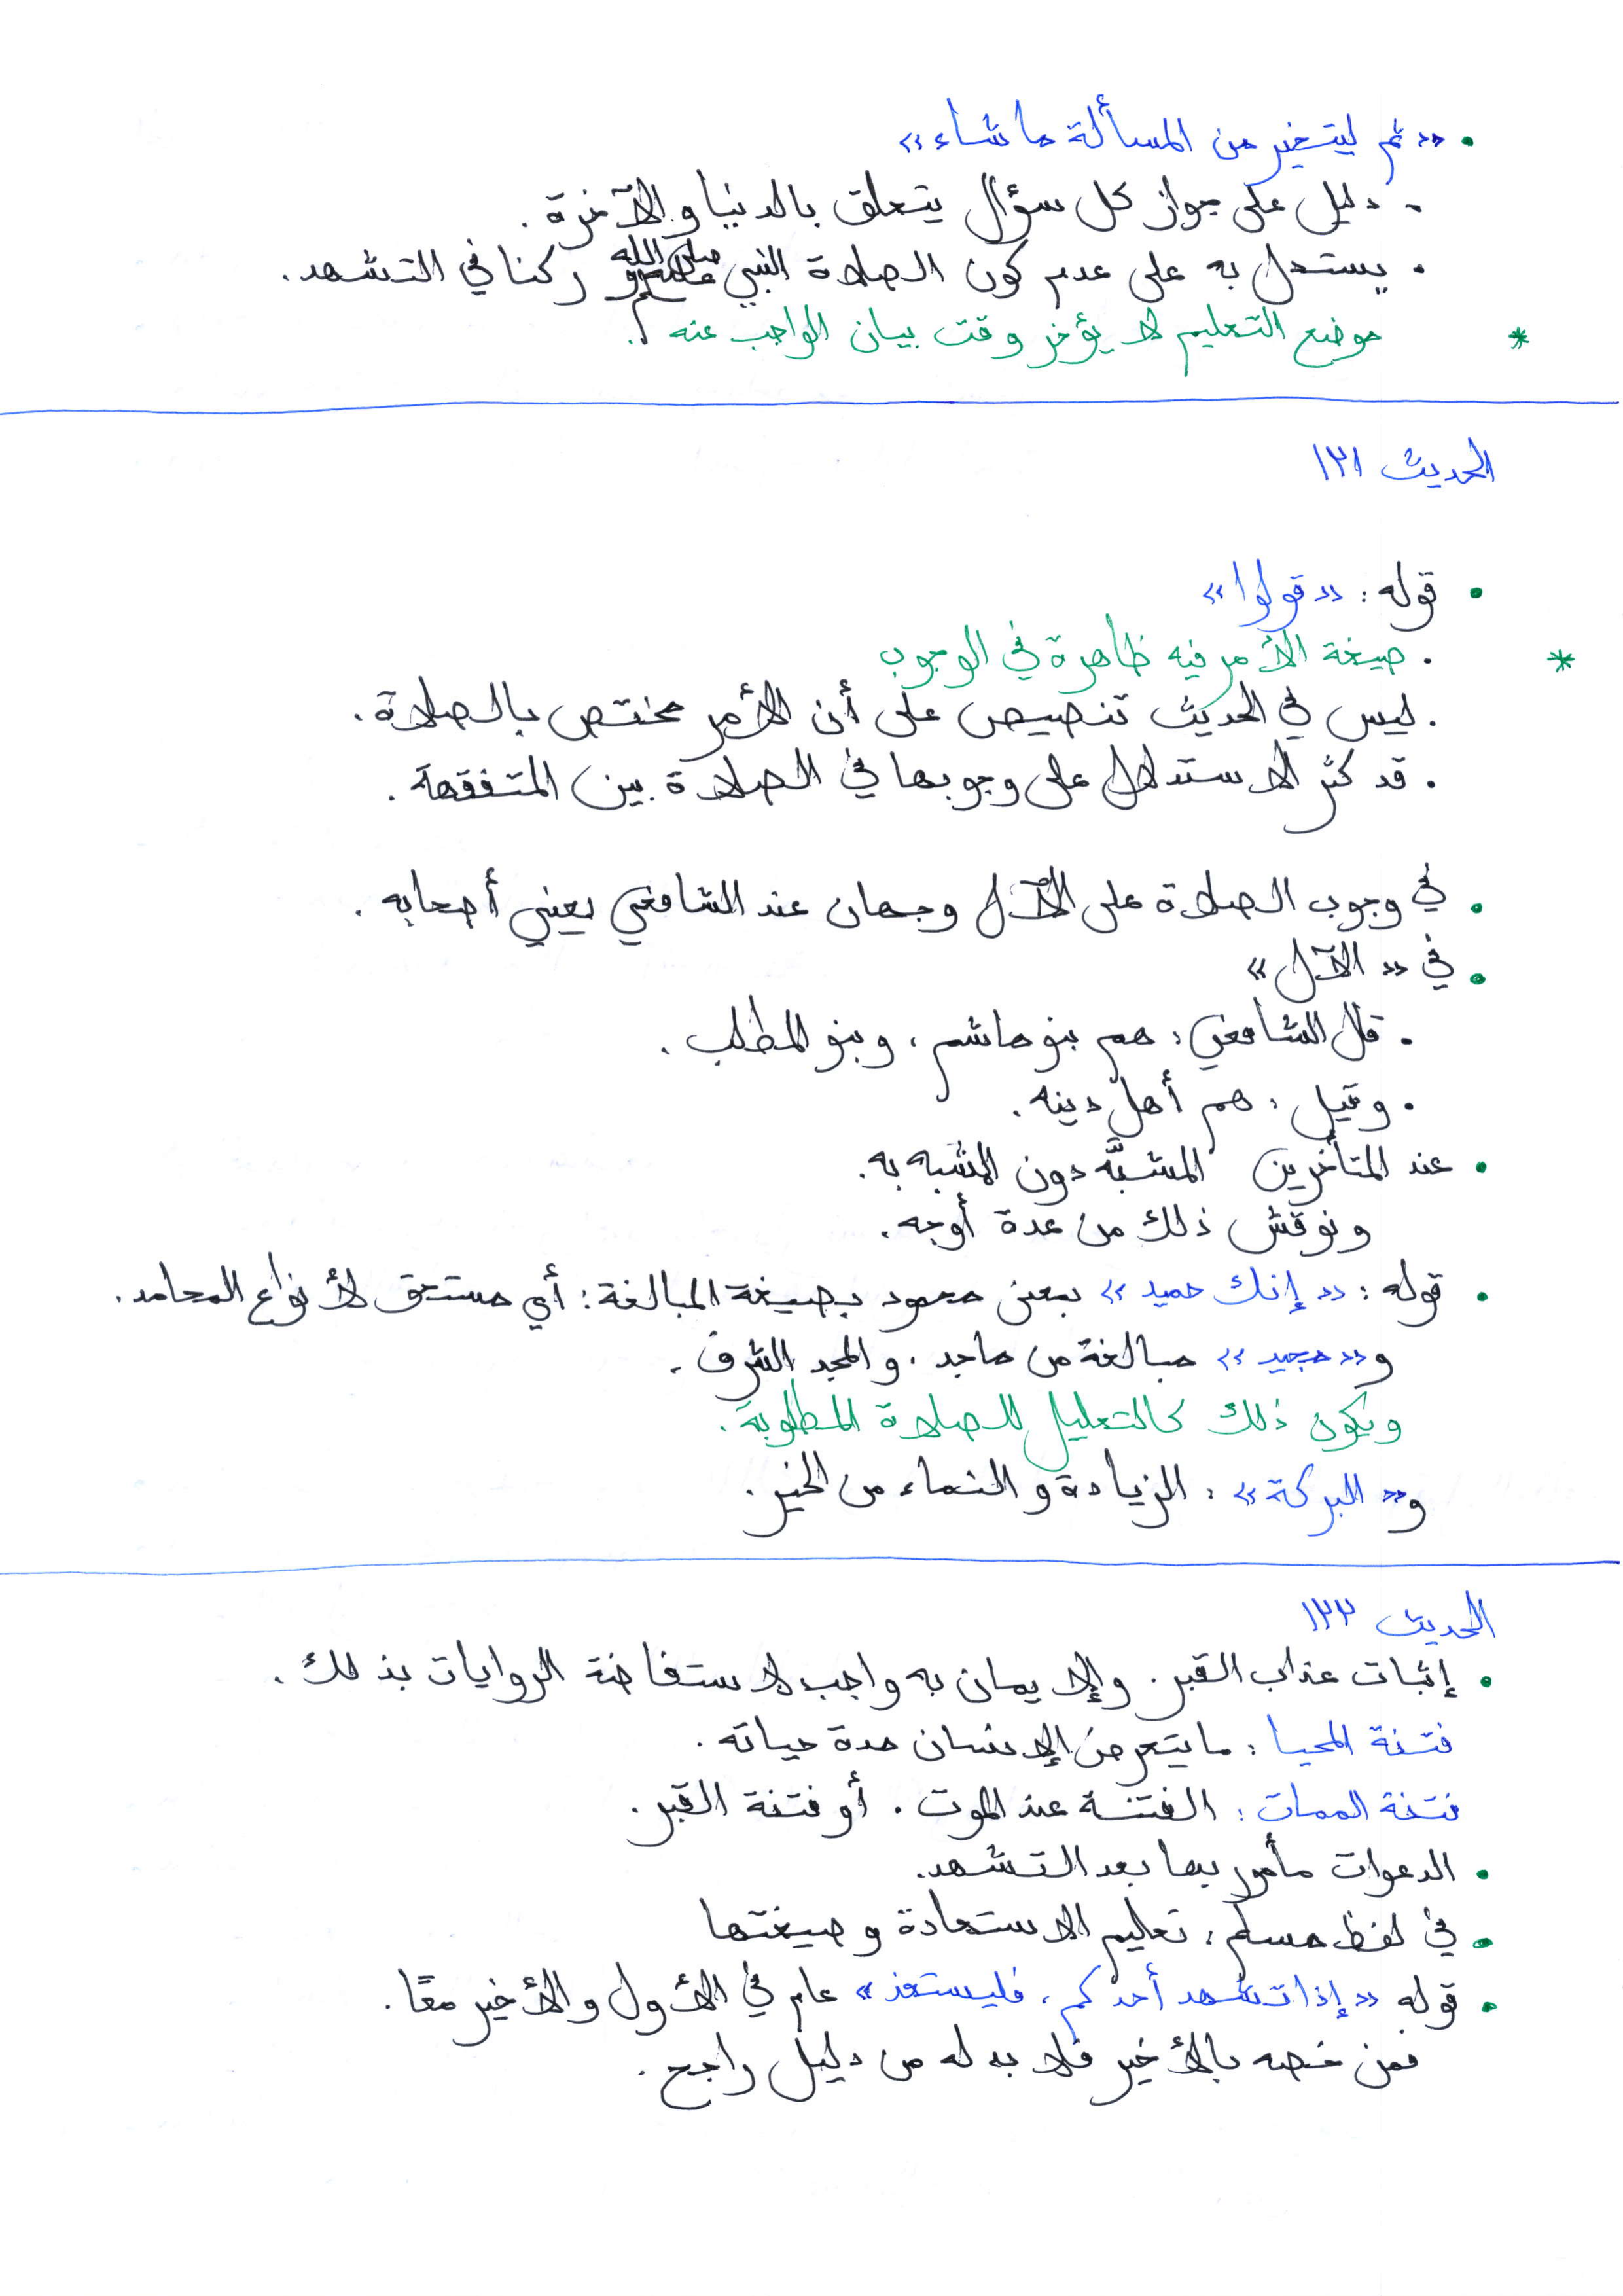 • «ثم ليتخير من المسألة ما شاء»
- دليل على جواز كل سؤال يتعلق بالدنيا والآخرة.
• يستدل به على عدم كون الصلاة النبي صلى الله عليه وسلم ركنا في التشهد.
* موضع التعليم لا يؤخر وقت بيان الواجب عنه.
الحديث ١٢١
• قوله: «قولوا»
* . صيغة الأمر فيه ظاهرة في الوجوب
. ليس في الحديث تنصيص على أن الأمر مختص بالصلاة.
. قد كثر الاستدلال على وجوبها في الصلاة بين المتفقهة.
• في وجوب الصلاة على الآل وجهان عند الشافعي يعني أصحابه.
• في «الآل»
. قال الشافعي: هم بنو هاشم، وبنو المطلب.
. وقيل: هم أهل دينه.
• عند المتأخرين المشبَّه دون المشبه به.
ونوقش ذلك من عدة أوجه.
• قوله: «إنك حميد» بمعنى محمود بصيغة المبالغة: أي مستحق لأنواع المحامد.
و«مجيد» مبالغة من ماجد. والمجد الشرف.
ويكون ذلك كالتعليل للصلاة المطلوبة.
و«البركة»: الزيادة والنماء من الخير.
الحديث ١٢٢
• إثبات عذاب القبر. والإيمان به واجب لاستفاضة الروايات بذلك.
فتنة المحيا: ما يتعرض الإنسان مدة حياته.
فتنة الممات: الفتنة عند الموت. أو فتنة القبر.
• الدعوات مأمور بها بعد التشهد.
• في لفظ مسلم: تعليم الاستعاذة وصيغتها
• قوله «إذا تشهد أحدكم، فليستعذ» عام في الأول والأخير معًا.
فمن خصه بالأخير فلا بد له من دليل راجح.